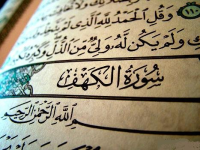 ١١٠ وَقُلِ الْحَمْدُ لِلَّهِ الَّذِى
وَلَمْ يَكُن لَّهُ وَلِىٌّ مِّنَ الذُّلِّ
سُورَةُ الْكَهْفِ
اللَّهِ الرَّحْمَٰنِ الرَّحِيمِ